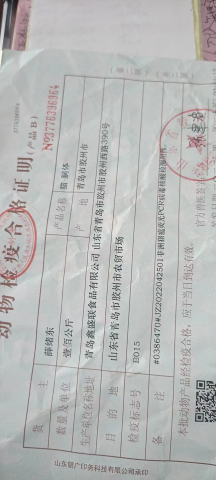 动物检疫合格证明(产品B)
№3776396964
货主 薛绪东 产品名称 猪 胴体
数量及单位 壹佰公斤 产地 青岛市胶州市
生产单位名称地址 青岛鑫盛联食品有限公司 山东省青岛市胶州市胶州西路390号
目的地 山东省青岛市胶州市农贸市场
检疫标志号 B015
备注
本批动物产品经检疫合格,应于当日到达有效。
官方兽医签字
山东银广印务科技有限公司承印